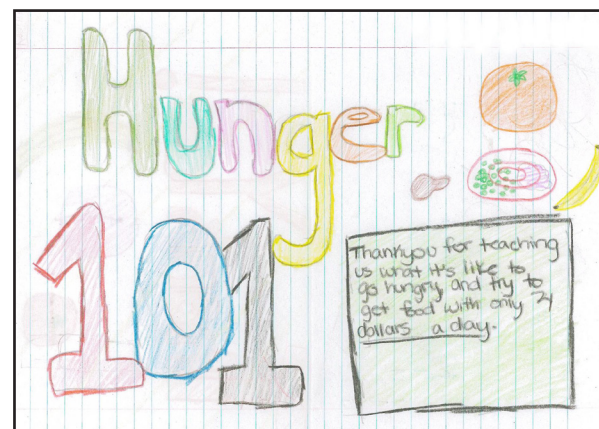 Hunger
101
Thankyou for teaching
us what it's like to
go hungry, and try to
get food with only 4
dollars a day.